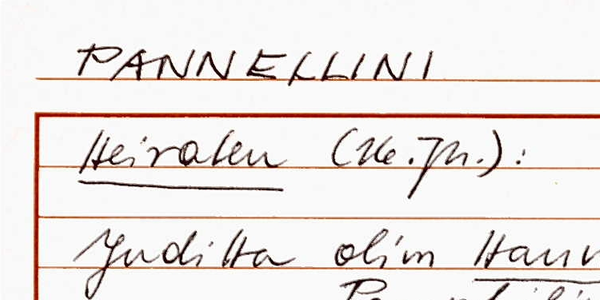 PANNELLINI
Heiraten (16. Jh.):
Juditta olim Hann